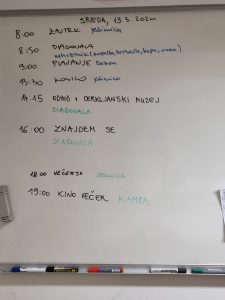 SREDA, 13.3.2024
8:00 ZAJTRK jedilnica
8:50 DIAGONALA
nahrbtnik (kopalke, brisača, kapa, voda)
9:00 PLAVANJE bazen
13:30 KOSILO jedilnica
14:15 ODHOD V CERKLJANSKI MUZEJ
DIAGONALA
16:00 ZNAJDEM SE
DIAGONALA
18:00 VEČERJA JEDILNICA
19:00 KINO VEČER